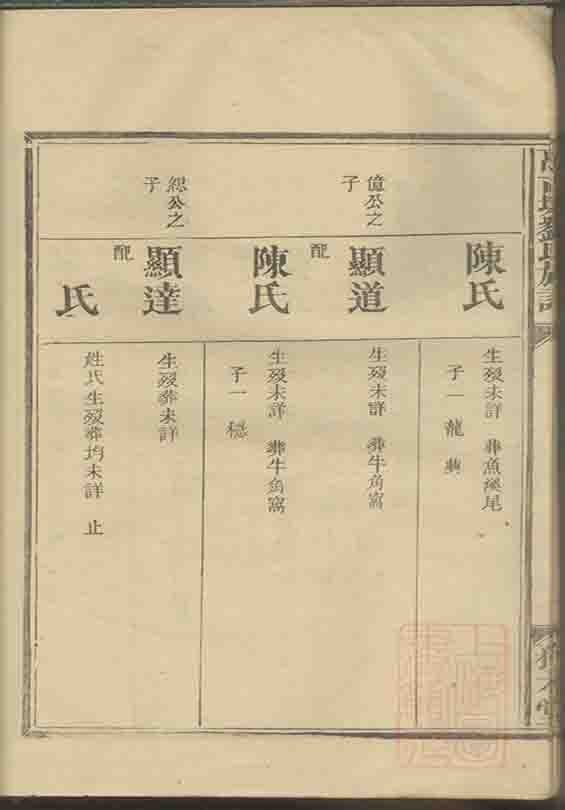 劉氏族
陳氏
生歿未詳 葬魚溪尾
子一 龍興
億公之
子
顯道
生歿未詳 葬牛角窩
配
陳氏
生歿未詳 葬牛角窩
子一 穩
總公之
子
顯達
生歿葬未詳
配
氏
姓氏生歿葬均未詳 止